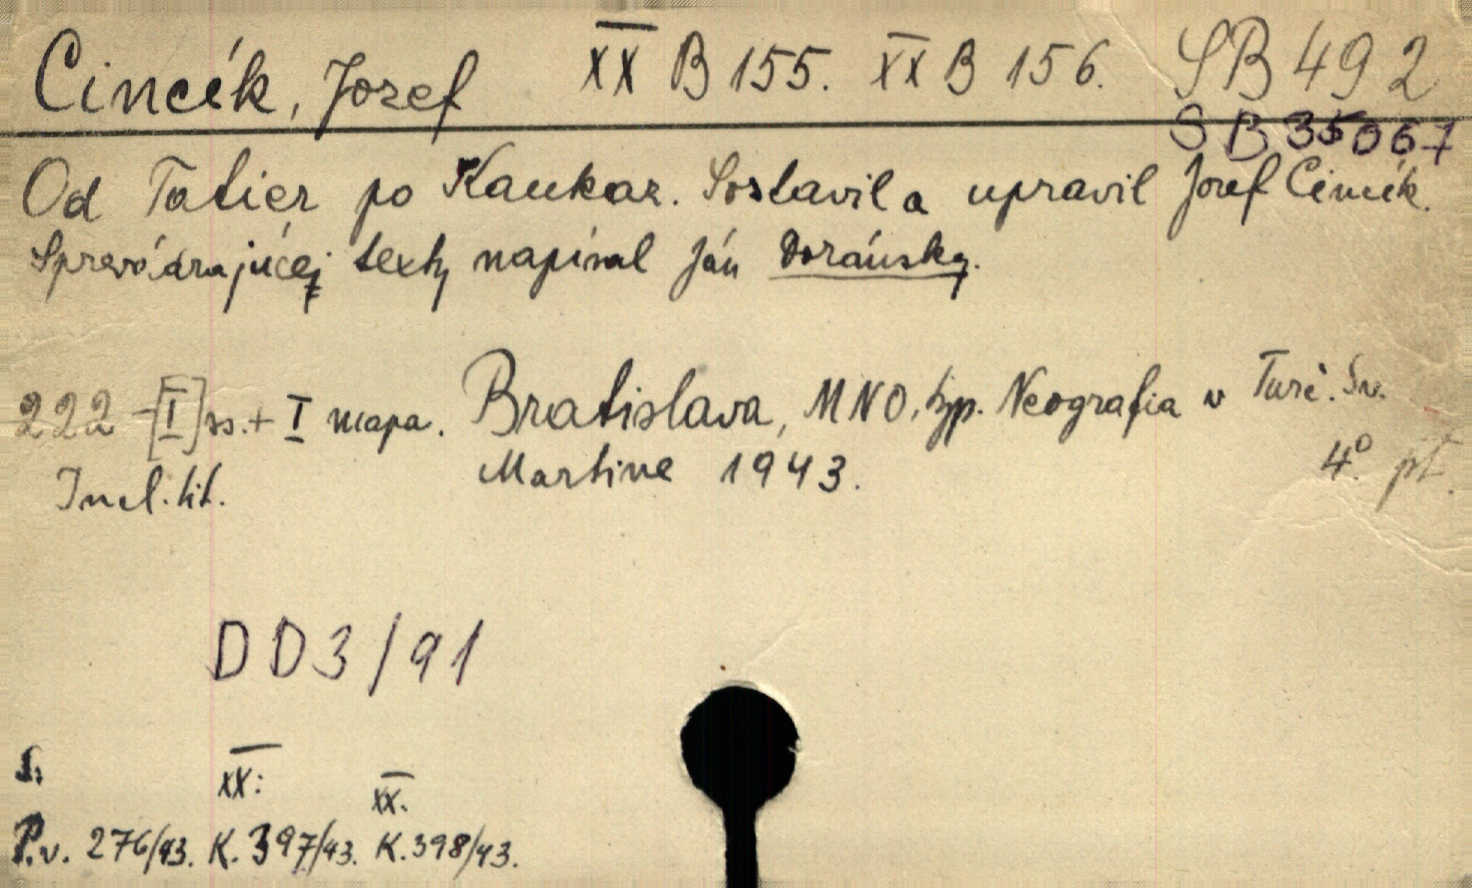 Cincík, Jozef X̅X̅ B 155. X̅X̅ B 156. SB 492
SB 35067
Od Tatier po Kaukaz. Sostavil a upravil Jozef Cincík.
Sprevádzajúcej texty napísal Ján Doránsky.
222-[I] ss.+ I mapa. Bratislava, MNO, typ. Neografia v Turč. Sv.
Martine 1943. 4° pt.
Incl. tit.
DD3/91
S. X̅X̅: X̅X̅.
P.v. 276/43. K. 397/43. K. 398/43.